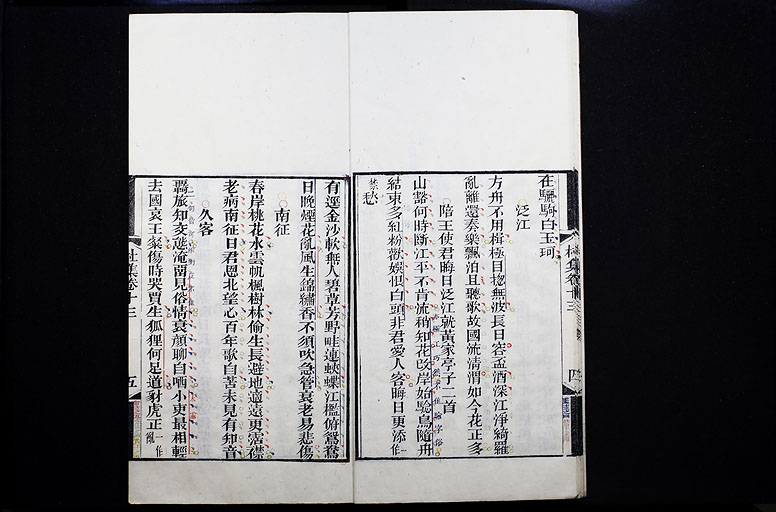 在驪駒白玉珂
泛江
方舟不用楫極目揔無波長日容盃酒深江淨綺羅
亂離還奏樂飄泊且聽歌故國流清渭如今花正多
陪王使君晦日泛江就黃家亭子二首
山豁何時斷江平不肯流稍知花改岸始驗鳥隨舟
結束多紅粉歡娛恨白頭非君愛人客晦日更添一作
禁愁
杜集卷十三
四
有逕金沙軟無人碧草芳野畦連蛺蝶江檻俯鴛鴦
日晚煙花亂風生錦繡香不須吹急管衰老易悲傷
南征
春岸桃花水雲帆楓樹林偷生長避地適遠更霑襟
老病南征日君恩北望心百年歌自苦未見有知音
久客
羇旅知交態淹留見俗情衰顏聊自哂小吏最相輕
去國哀王粲傷時哭賈生狐狸何足道豺虎正一作亂
杜集卷十三
五